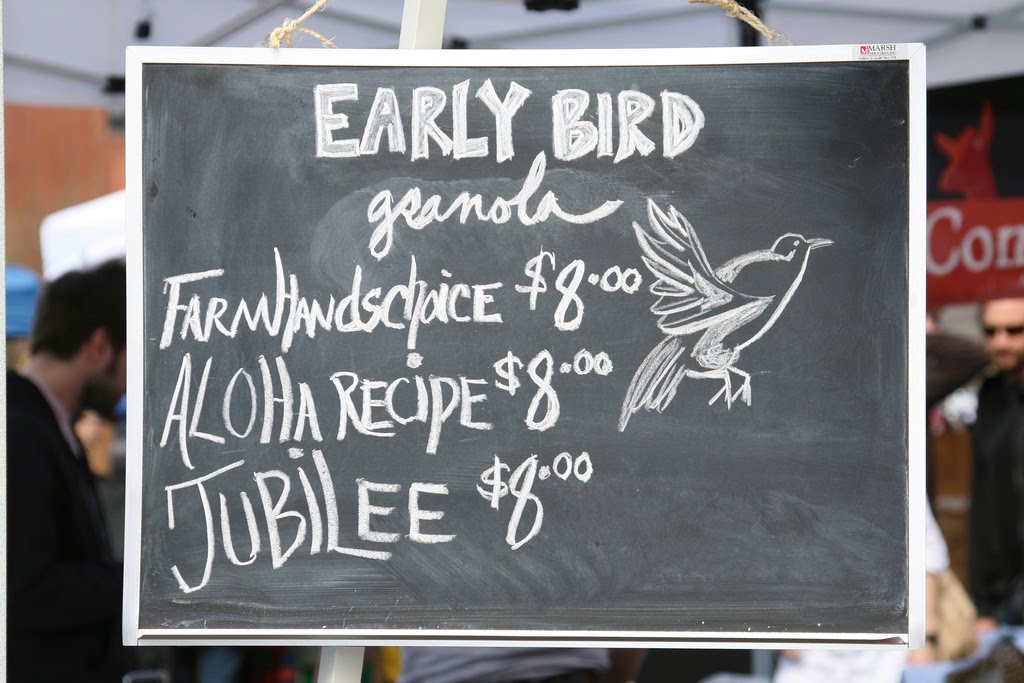 MARSH
EARLY BIRD
granola
FARMHANDSCHOICE $8.00
ALOHA RECIPE $8.00
JUBILEE $8.00
Con